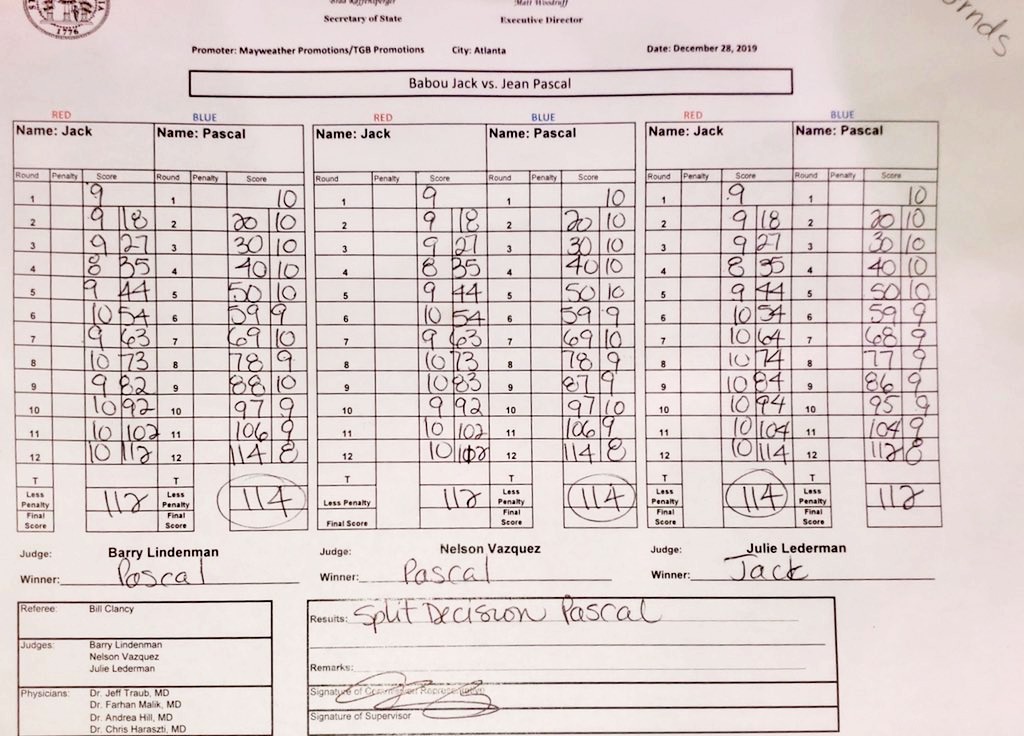 1776
Brad Raffensperger
Matt Woodruff
Secretary of State
Executive Director
Promoter: Mayweather Promotions/TGB Promotions City: Atlanta Date: December 28, 2019
Babou Jack vs. Jean Pascal
RED BLUE RED BLUE RED BLUE
Name: Jack Name: Pascal Name: Jack Name: Pascal Name: Jack Name: Pascal
Round Penalty Score Round Penalty Score Round Penalty Score Round Penalty Score Round Penalty Score Round Penalty Score
1 9 1 10 1 9 1 10 1 9 1 10
2 9 18 2 20 10 2 9 18 2 20 10 2 9 18 2 20 10
3 9 27 3 30 10 3 9 27 3 30 10 3 9 27 3 30 10
4 8 35 4 40 10 4 8 35 4 40 10 4 8 35 4 40 10
5 9 44 5 50 10 5 9 44 5 50 10 5 9 44 5 50 10
6 10 54 6 59 9 6 10 54 6 59 9 6 10 54 6 59 9
7 9 63 7 69 10 7 9 63 7 69 10 7 10 64 7 68 9
8 10 73 8 78 9 8 10 73 8 78 9 8 10 74 8 77 9
9 9 82 9 88 10 9 10 83 9 87 9 9 10 84 9 86 9
10 10 92 10 97 9 10 9 92 10 97 10 10 10 94 10 95 9
11 10 102 11 106 9 11 10 102 11 106 9 11 10 104 11 104 9
12 10 112 12 114 8 12 10 102 12 114 8 12 10 114 12 112 8
T T T T T T
Less Penalty 112 Less Penalty 114 Less Penalty 112 Less Penalty 114 Less Penalty 114 Less Penalty 112
Final Score Final Score Final Score Final Score Final Score Final Score
Judge: Barry Lindenman Judge: Nelson Vazquez Judge: Julie Lederman
Winner: Pascal Winner: Pascal Winner: Jack
Referee: Bill Clancy
Judges: Barry Lindenman
Nelson Vazquez
Julie Lederman
Physicians: Dr. Jeff Traub, MD
Dr. Farhan Malik, MD
Dr. Andrea Hill, MD
Dr. Chris Haraszti, MD
Results: Split Decision Pascal
Remarks:
Signature of Commission Representative
Signature of Supervisor